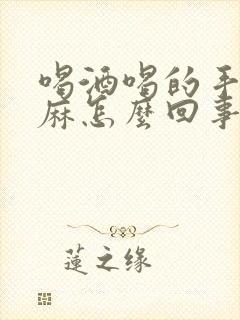 喝酒喝的手
麻怎麼回事
蓮之缘